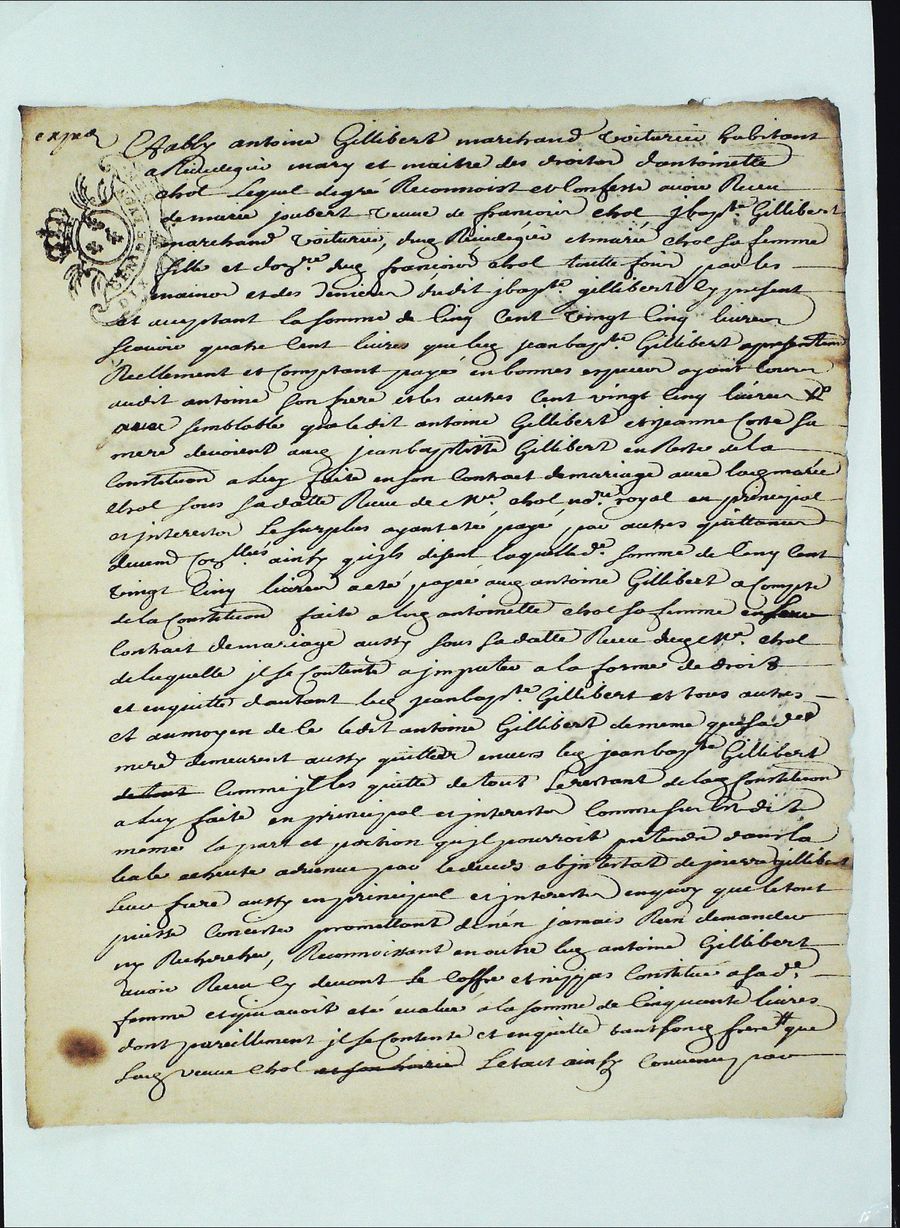 exped
Estably antoine Gillibert marchand voiturier habitant
a Rivedegier mary et maitre des droits d'antoinette
chol Lequel de gré Reconnoist et Confesse avoir Receu
de marie joubert veuve de francois chol jbapte. Gillibert
marchand voiturier, dud Rivedegier et marie chol sa femme
fille et dud francois chol toutte fois par les
mains et des deniers dudit jbapte gillibert Cy present
et acceptant la somme de Cinq Cent vingt Cinq livres
scavoir quatre Cent livres que led jeanbapte. Gillibert a presentem
Réellement et Comptant payé en bonnes especes ayant cours
audit antoine son frere et les autres Cent vingt Cinq livres
semblable que ledit antoine Gillibert et jeanne Coste sa
mere devoient aud jeanbaptiste Gillibert en Reste de la
Constitution a luy faite en son Contrat de mariage avec lad marie
chol sous sa datte Receu de Me. chol nore. royal en principal
et interests Le surplus ayant eté payé par autres quittances
ainsy qu'ils disent laquelle de. somme de Cinq Cent
vingt Cinq livres a eté payée aud antoine Gillibert a Compte
de la Constitution faite a lad antoinette chol sa femme en leur
Contrat de mariage aussy sous sa datte Receu dud Me. chol
de laquelle jl se Contente a jmputer a la forme de droit
et en quitte d'autant led jeanbapte. Gillibert et tous autres
et au moyen de Ce ledit antoine Gillibert de meme que sad
mere demeurent aussy quittes envers led jeanbapte Gillibert
de tout Comme jl les quitte de tout Le restant de lad Constitution
a luy faite en principal et interests Comme sus Est dit
meme la part et portion qu'jl pourroit pretendre dans la
echeute advenue par le deces abjntestat de pierre gillibert
leur frere aussy en principal et jnterests en quoy que le tout
puisse Concister promettant de n'en jamais Rien demander
ny Rechercher, Reconnoissant en outre led antoine Gillibert
avoir Receu Cy devant Le Coffre et nippas Constitué a sa de.
femme et qui avoit eté evalué a la somme de Cinquante livres
dont pareillement jl se Contente et en quitte tant sond frere que
lad veuve chol et son hoirie Le tout ainsy Convenu par